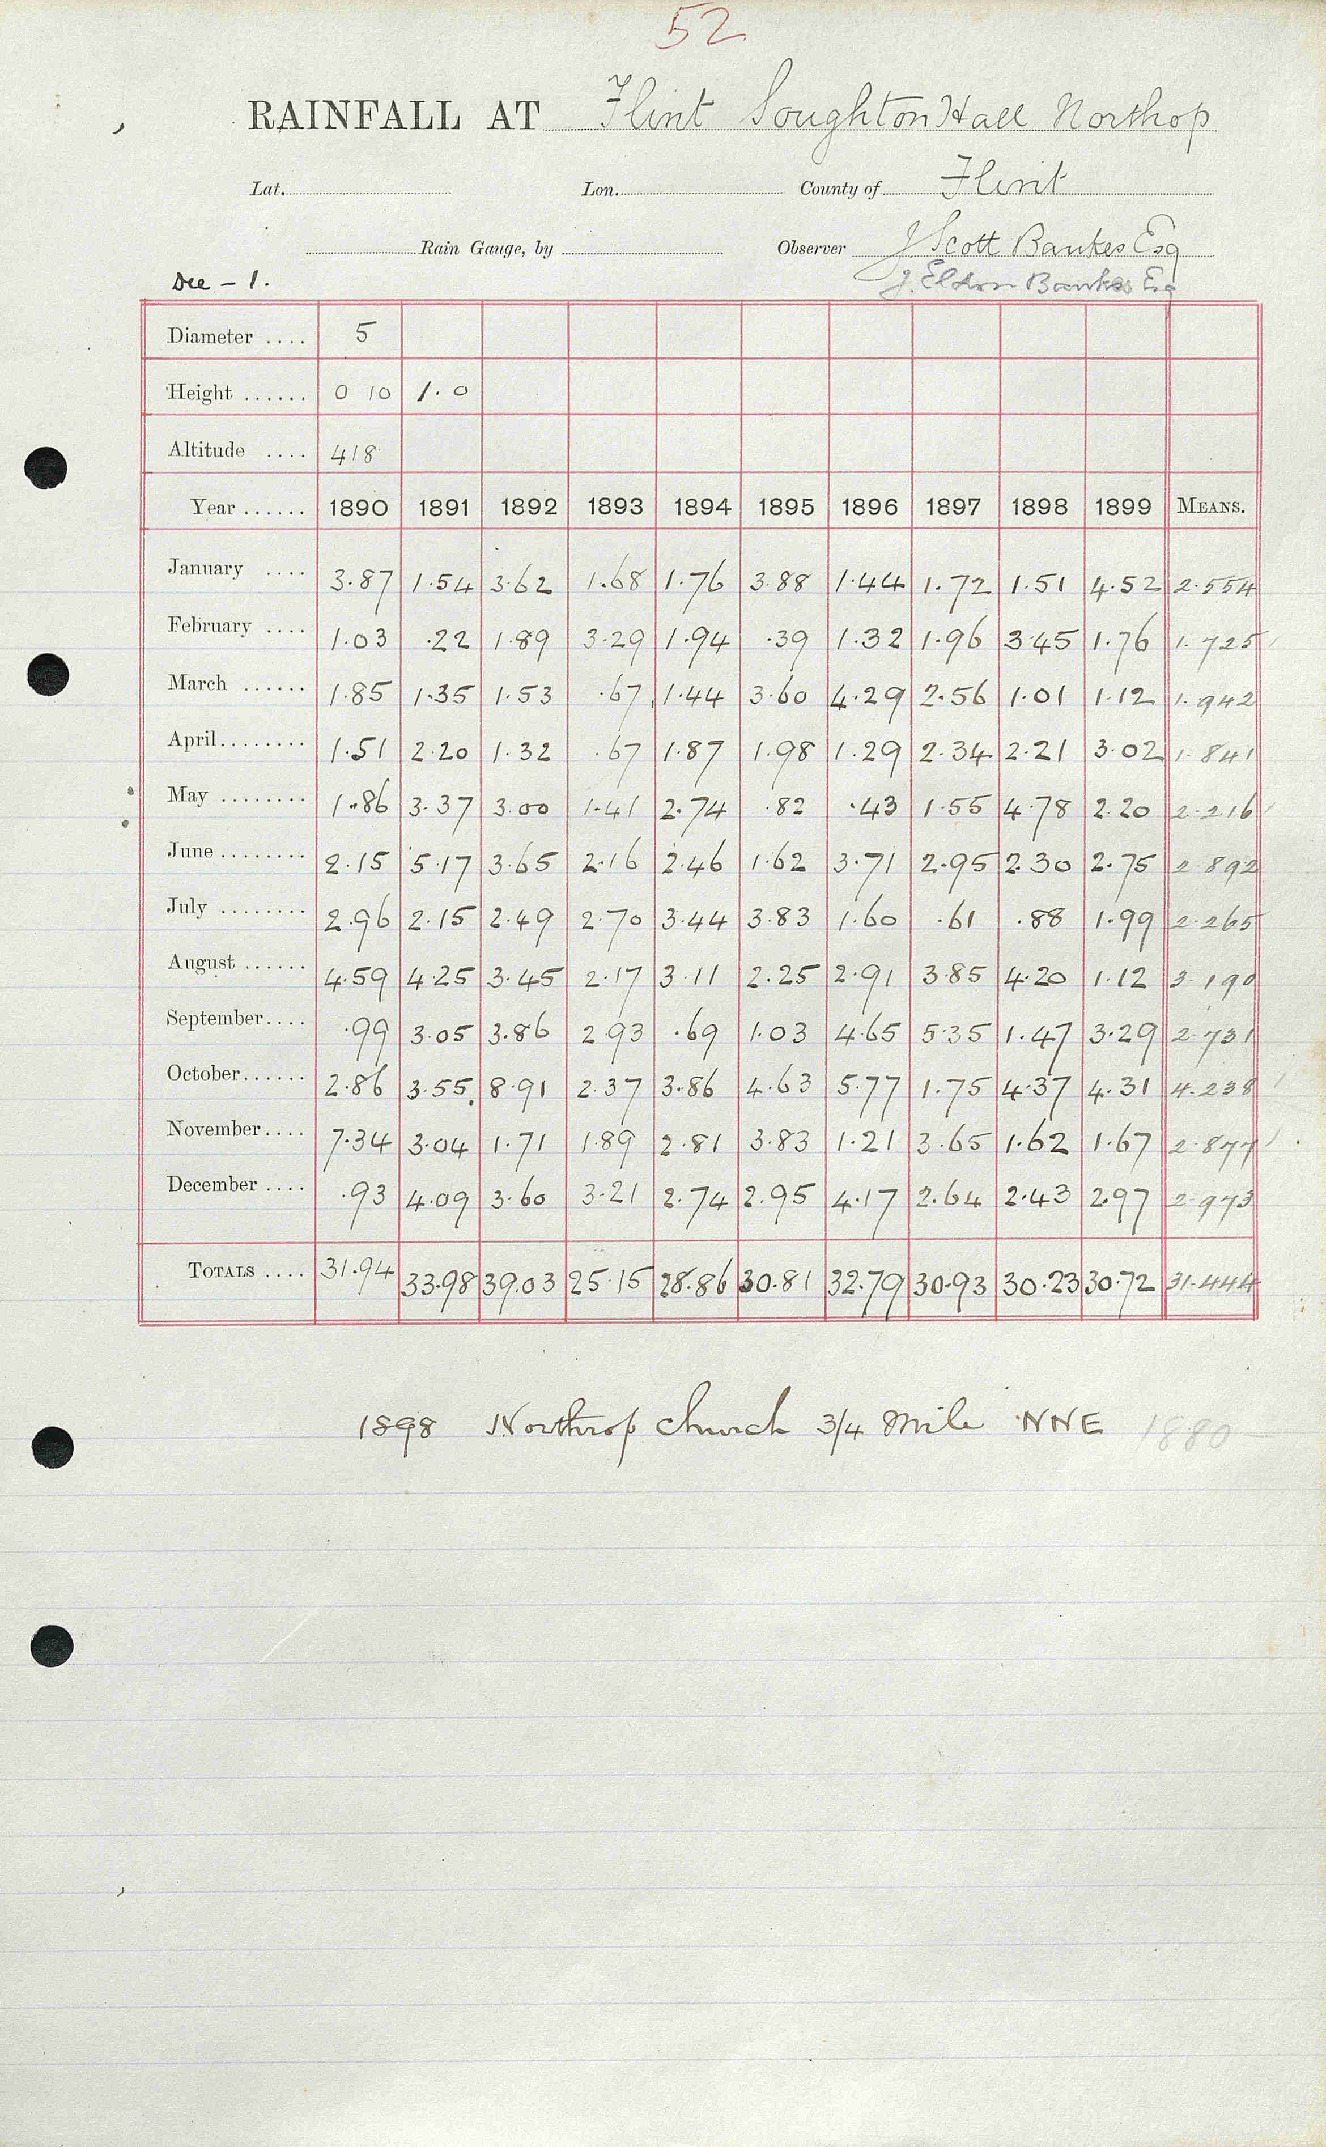 52
RAINFALL AT Flint Soughton Hall Northop
Lat. Lon. County of Flint
Rain Gauge, by Observer J Scott Bankes Esq
Dec - 1. J. Eldon Bankes Esq
Diameter .... 5
Height ...... 0 10 1.0
Altitude .... 418
Year ...... 1890 1891 1892 1893 1894 1895 1896 1897 1898 1899 MEANS.
January .... 3.87 1.54 3.62 1.68 1.76 3.88 1.44 1.72 1.51 4.52 2.554
February .... 1.03 .22 1.89 3.29 1.94 .39 1.32 1.96 3.45 1.76 1.725
March ...... 1.85 1.35 1.53 .67 1.44 3.60 4.29 2.56 1.01 1.12 1.942
April........ 1.51 2.20 1.32 .67 1.87 1.98 1.29 2.34 2.21 3.02 1.841
May ........ 1.86 3.37 3.00 1.41 2.74 .82 .43 1.55 4.78 2.20 2.216
June ........ 2.15 5.17 3.65 2.16 2.46 1.62 3.71 2.95 2.30 2.75 2.892
July ........ 2.96 2.15 2.49 2.70 3.44 3.83 1.60 .61 .88 1.99 2.265
August ...... 4.59 4.25 3.45 2.17 3.11 2.25 2.91 3.85 4.20 1.12 3.190
September.... .99 3.05 3.86 2.93 .69 1.03 4.65 5.35 1.47 3.29 2.731
October...... 2.86 3.55 8.91 2.37 3.86 4.63 5.77 1.75 4.37 4.31 4.238
November.... 7.34 3.04 1.71 1.89 2.81 3.83 1.21 3.65 1.62 1.67 2.877
December .... .93 4.09 3.60 3.21 2.74 2.95 4.17 2.64 2.43 2.97 2.973
TOTALS .... 31.94 33.98 39.03 25.15 28.86 30.81 32.79 30.93 30.23 30.72 31.444
1898 Northrop Church 3/4 Mile NNE 1880